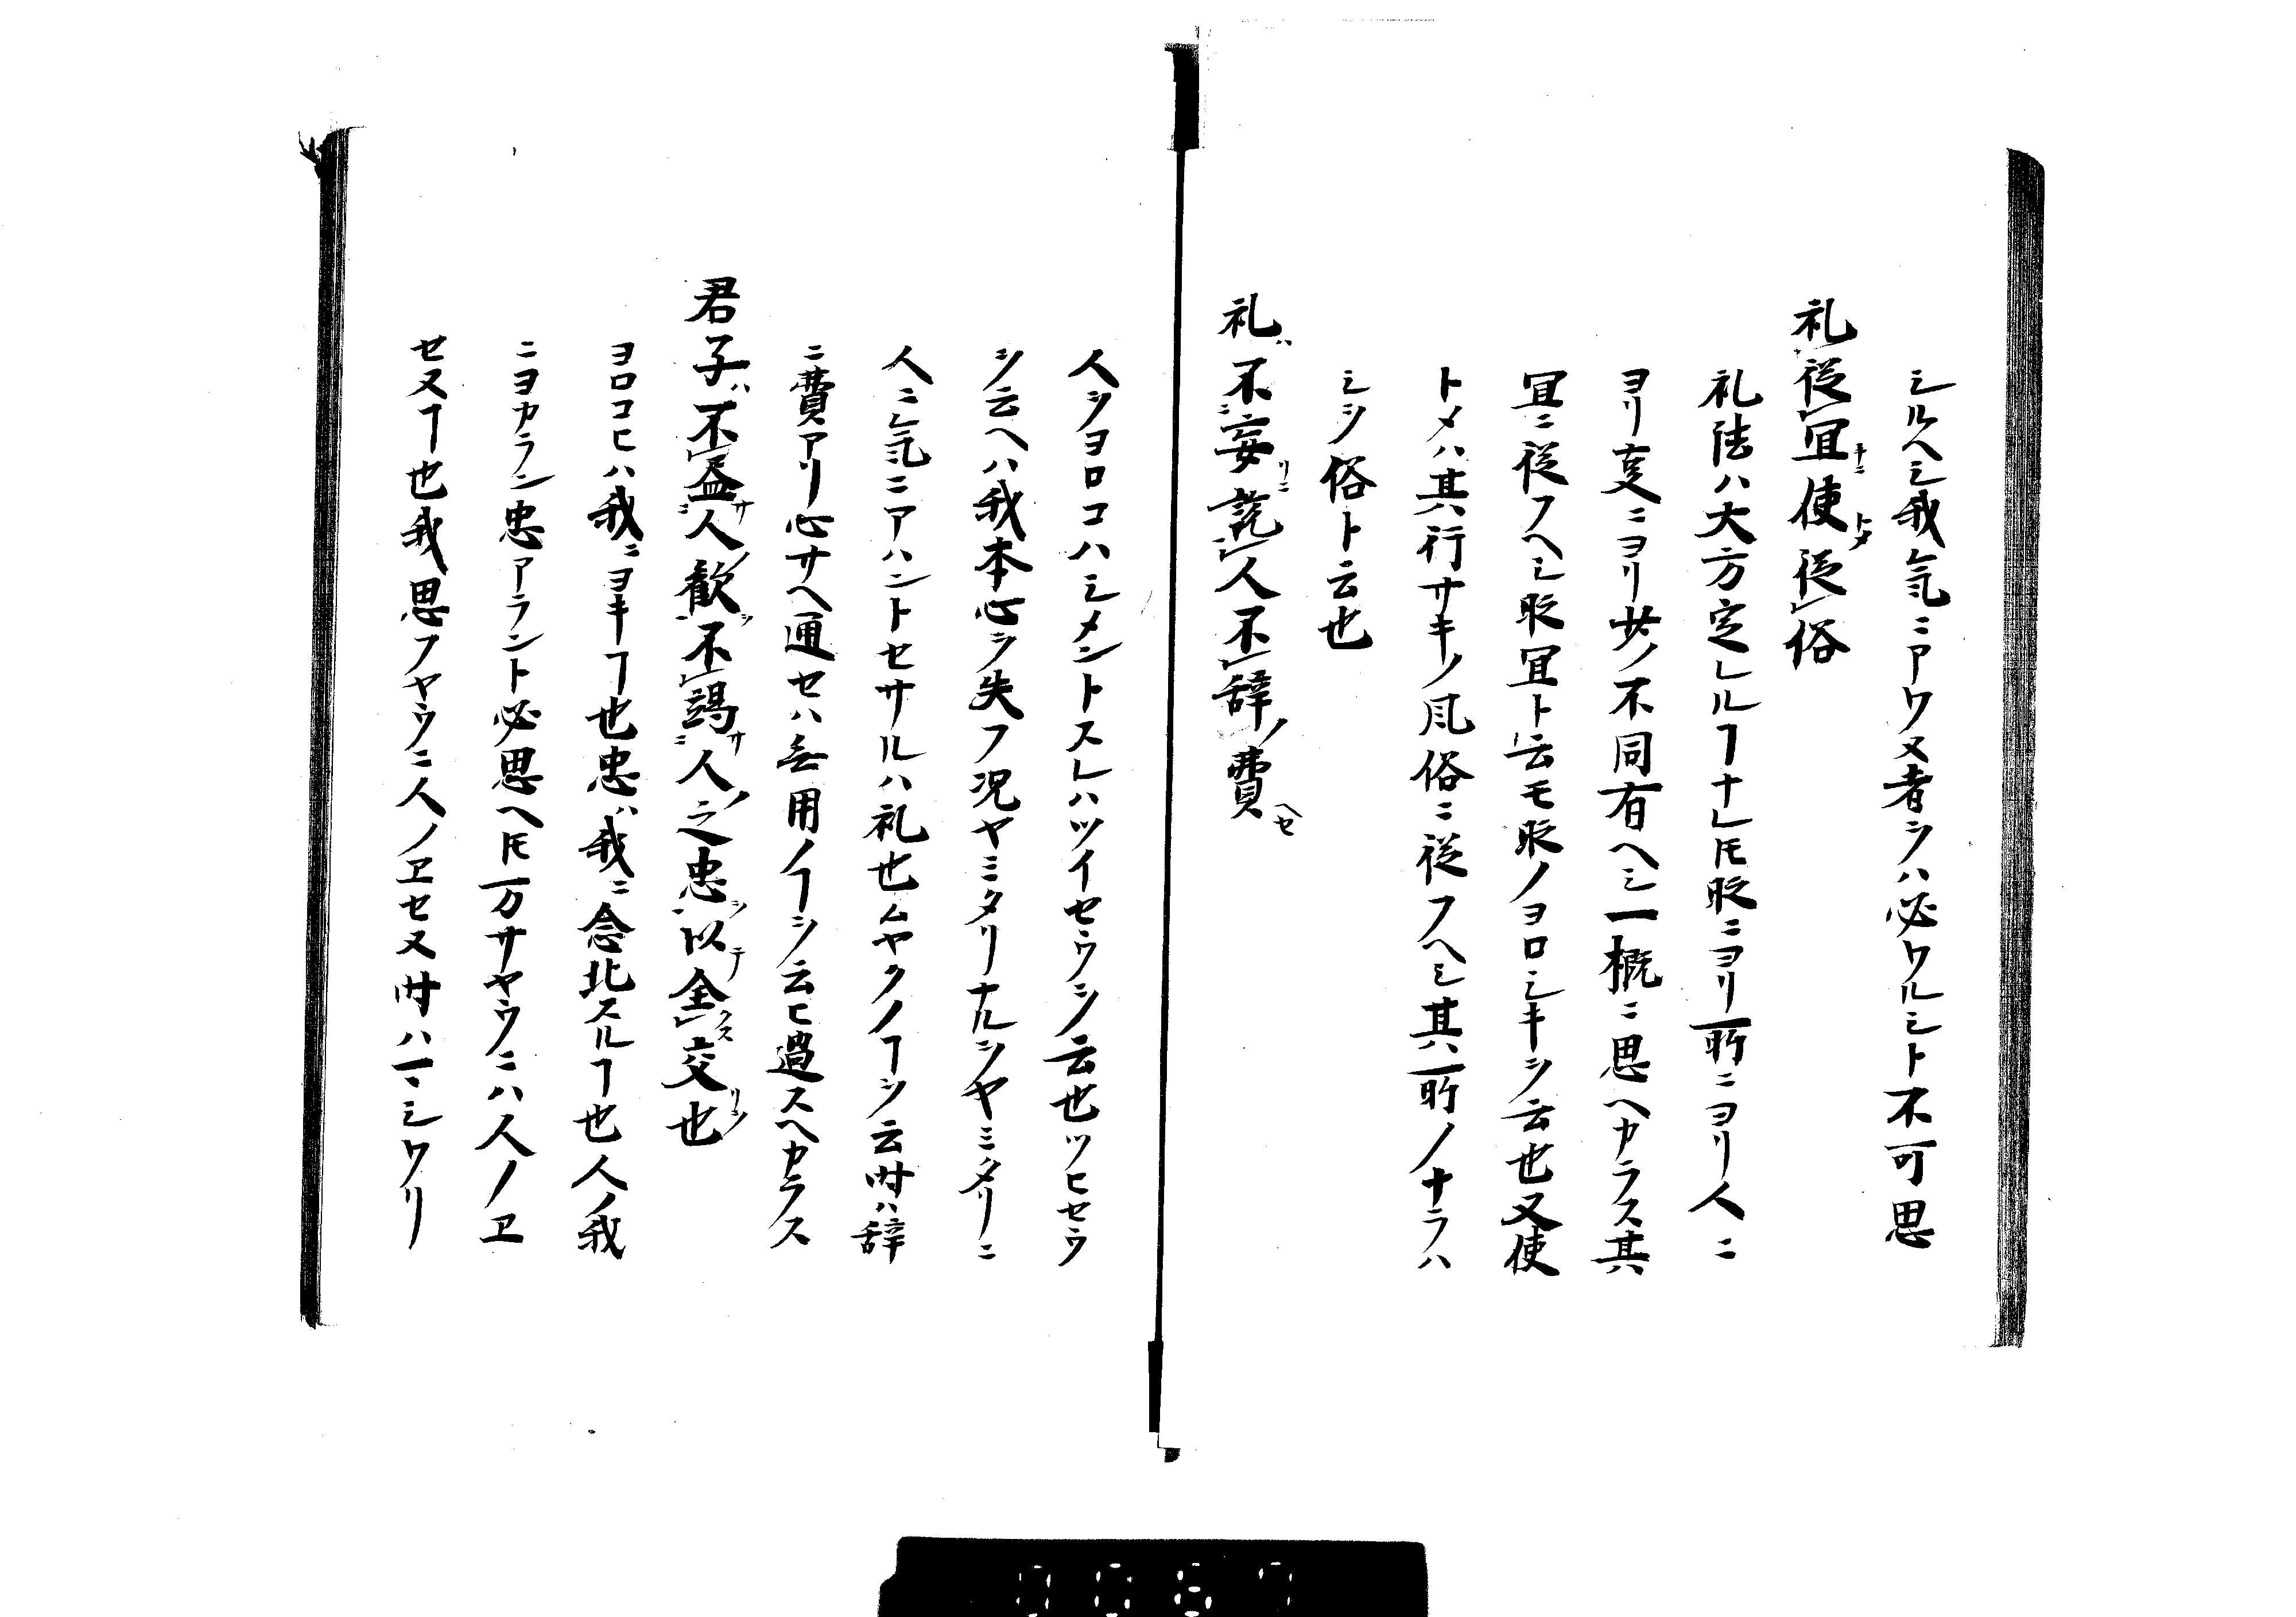 シルヘシ我気ニアワヌ者ヲハ必ワルシト不可思
礼従宜使従俗
礼法ハ大方定レルヿナレ𪜈時ニヨリ所ニヨリ人ニ
ヨリ変ニヨリ其ノ不同有ヘシ一概ニ思ヘカラス其
宜ニ従フヘシ時宜ト云モ時ノヨロシキヲ云也又使
トメハ其行サキノ風俗ニ従フヘシ其所ノナラハ
シヲ俗ト云也
礼ハ不妄リニ説人不辞費
人ヲヨロコハシメントスレハツイセウヲ云也ツヒセウ
ヲ云ヘハ我本心ヲ失フ况ヤミタリナルヲヤミタリニ
人ニ気ニアハントセサルハ礼也ムヤクノヿヲ云時ハ辞
ニ費アリ心サヘ通セハ無用ノヿヲ云ヒ過スヘカラス
君子ハ不尽人歓不竭人之忠以全交也
ヨロコヒハ我ニヨキヿ也忠ハ我ニ念比スルヿ也人ノ我
ニヨカラン忠アラント必思ヘ𪜈万サヤウニハ人ノヱ
セヌヿ也我思フヤウニ人ノヱセヌ時ハ一ヽシワリ